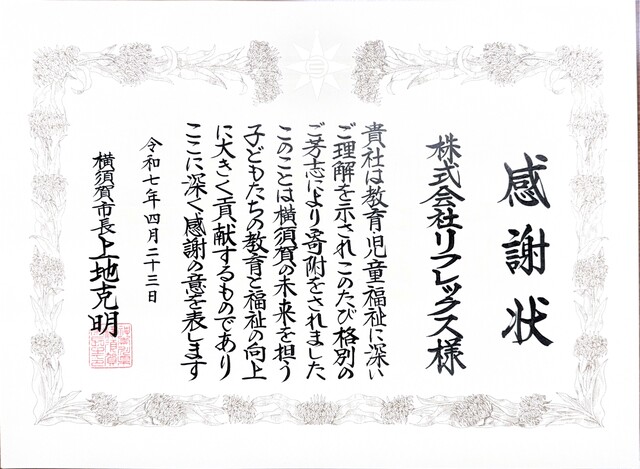 感謝状
株式会社リフレックス様
貴社は教育児童福祉に深い
ご理解を示されこのたび格別の
ご芳志により寄附をされました
このことは横須賀の未来を担う
子どもたちの教育と福祉の向上
に大きく貢献するものであり
ここに深く感謝の意を表します
令和七年四月二十三日
横須賀市長 上地克明